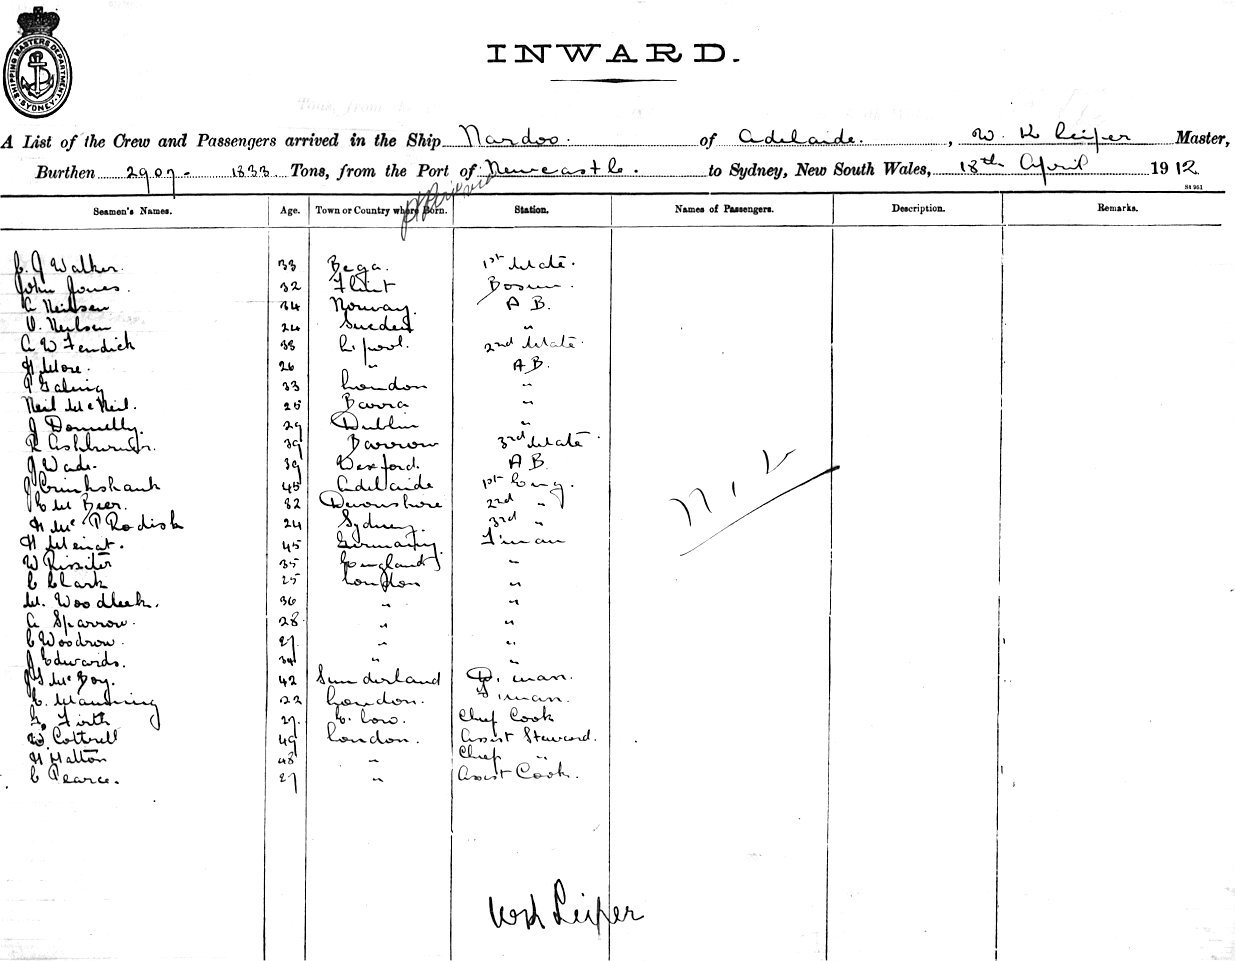 SHIPPING MASTERS DEPARTMENT. SYDNEY
INWARD.
A List of the Crew and Passengers arrived in the Ship Nardoo. of Adelaide. , W. H Leiper Master,
Burthen 2907 - 1833 Tons, from the Port of Newcastle. to Sydney, New South Wales, 18th April 1912
St 951
Seamen's Names. Age. Town or Country where Born. Station. Names of Passengers. Description. Remarks.
J Walker. 38 Bega. 1st Mate.
John Jones. 32 Flint Bosun.
Neilsen 34 Norway. A B.
Neilsen 24 Sweden "
W Fendick 38 L.pool. 2nd Mate.
H More. 26 " AB.
33 London "
Neil McNeil. 25 Barra "
J Donnelly. 29 Dublin "
R Ashburner. 39 Barrow 3rd Mate
J Wade. 39 Wexford. A B.
J Cruikshank 45 Adelaide 1st Eng.
Beer. 32 Devonshire 2nd "
H Mc 24 Sydney. 3rd "
H 45 Germany. F'man
W Rissiter 35 England "
C Clark 25 London "
M. 36 " "
A Sparrow. 28 " "
C Woodrow. 27 " "
J Edwards. " "
42 Sunderland D. man.
C. Manning 22 London. F'man.
Firth 27. Chief Cook
W. Cottrell 49 London. Assist Steward.
H Hatton 48 " Chief "
C Pearce. 27 " Assist Cook.
Nil
WH Leiper